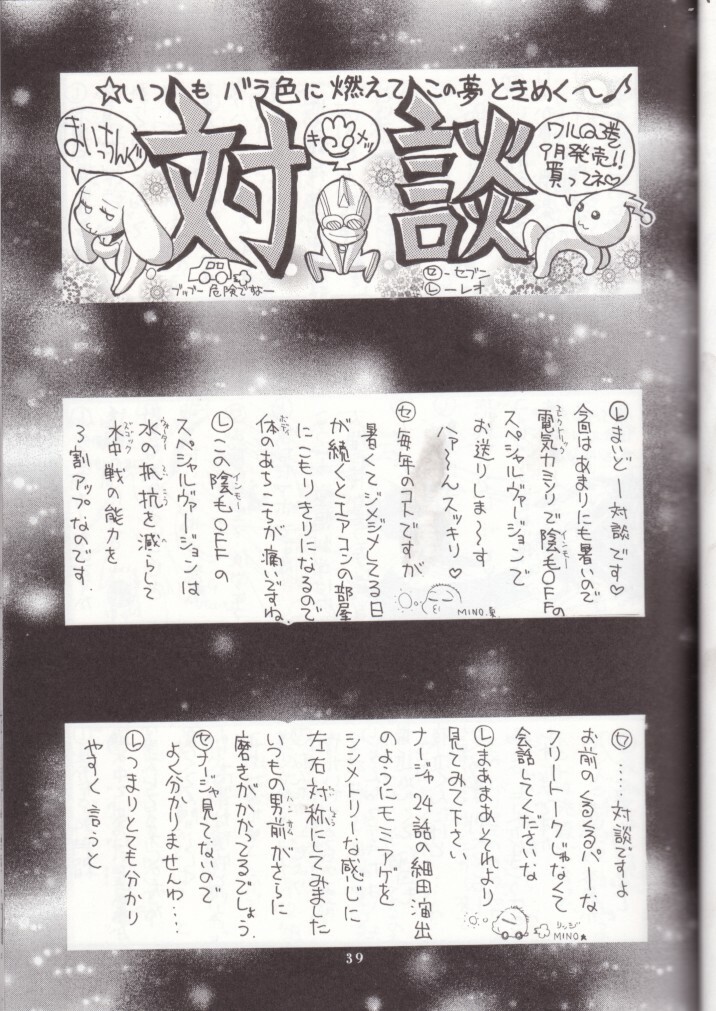 ☆いつもバラ色に燃えてこの夢ときめく～♪
まいっちんぐ
対談
キメッ
ワルQ3巻
9月発売!!
買ってネ♡
ブッブー危険でなー
セ-セブン
レ-レオ
レ まいどー対談です♡
今回はあまりにも暑いので
電気カミソリで陰毛OFFの
スペシャルヴァージョンで
お送りしま〜〜す
ハァ〜〜んスッキリ♡
セ 毎年のコトですが
暑くてジメジメしてる日
が続くとエアコンの部屋
にこもりきりになるので
体のあちこちが痛いですね。
レ この陰毛OFFの
スペシャルヴァージョンは
水の抵抗を減らして
水中戦の能力を
3割アップなのです.
MINO.
セ ……対談ですよ
お前のくるくるパーな
フリートークじゃなくて
会話してくださいな
レ まあまあそれより
見てみて下さい
ナージャ24話の細田演出
のようにモミアゲを
シンメトリーな感じに
左右対称にしてみました
いつもの男前がさらに
磨きがかかってるでしょう.
セ ナージャ見てないので
よく分かりませんわ…
レ つまりとても分かり
やすく言うと
リッジ
MINO★
39